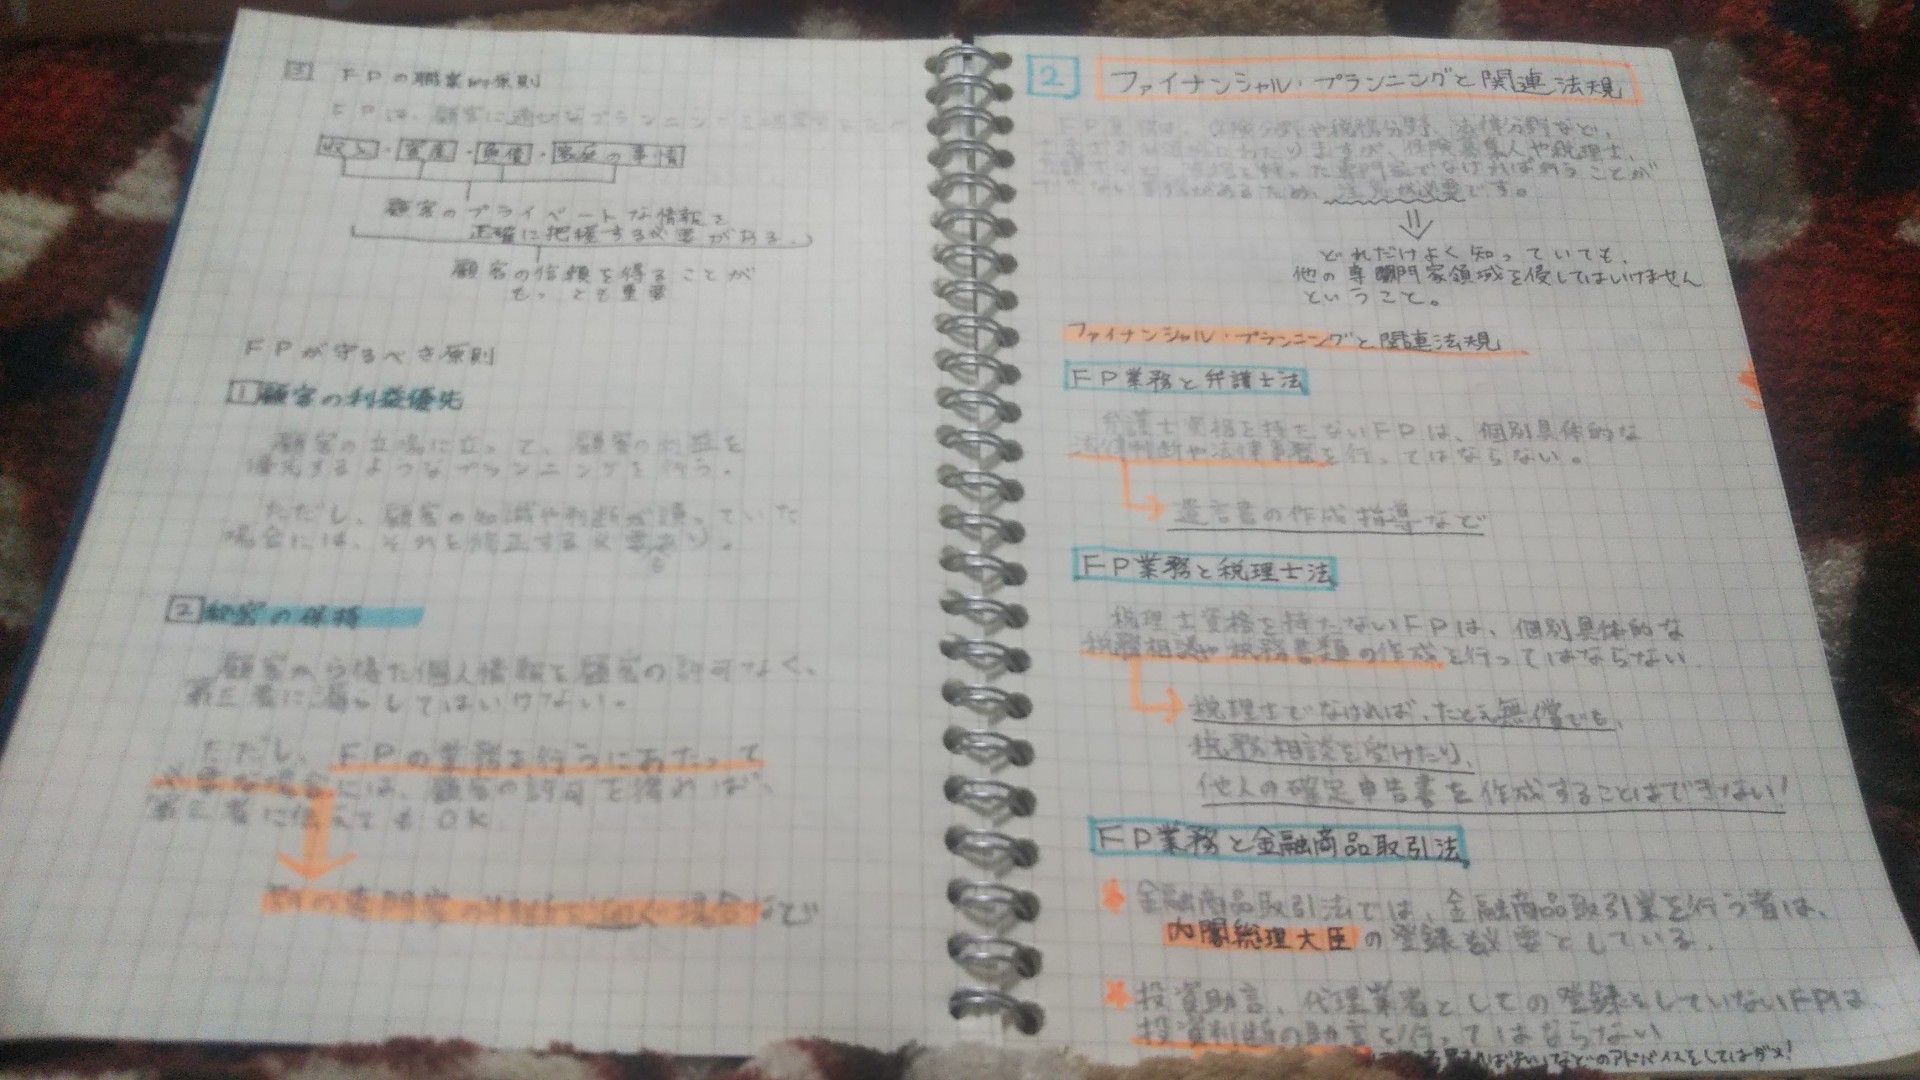 3 FPの職業的原則
FPは、顧客に適切なプランニングを
収入・資産・負債・家庭の事情
顧客のプライベートな情報を
正確に把握する必要がある。
顧客の信頼を得ることが
もっとも重要
FPが守るべき原則
1 顧客の利益優先
顧客の立場に立って、顧客の利益を
優先するようなプランニングを行う。
ただし、顧客の知識や判断が誤っていた
場合には、それを修正する必要あり。
2 秘密の保持
顧客から得た個人情報を顧客の許可なく、
第三者に漏らしてはいけない。
ただし、FPの業務を行うにあたって
必要な場合には、顧客の許可を得れば、
第三者に伝えてもOK
別の専門家の判断を仰ぐ場合など
2 ファイナンシャル・プランニングと関連法規
FP業務は、保険分野や税務分野、法律分野など、
にわたりますが、保険募集人や税理士、
資格を持った専門家でなければ行うことが
できない業務があるため、注意が必要です。
どれだけよく知っていても、
他の専門家領域を侵してはいけません
ということ。
ファイナンシャル・プランニングと関連法規
FP業務と弁護士法
弁護士資格を持たないFPは、個別具体的な
法律判断や法律事務を行ってはならない。
遺言書の作成指導など
FP業務と税理士法
税理士資格を持たないFPは、個別具体的な
税務相談や税務書類の作成を行ってはならない
税理士でなければ、たとえ無償でも、
税務相談を受けたり、
他人の確定申告書を作成することはできない!
FP業務と金融商品取引法
* 金融商品取引法では、金融商品取引業を行う者は、
内閣総理大臣の登録を必要としている。
* 投資助言、代理業者としての登録をしていないFPは、
投資判断の助言を行ってはならない
などのアドバイスをしてはダメ!